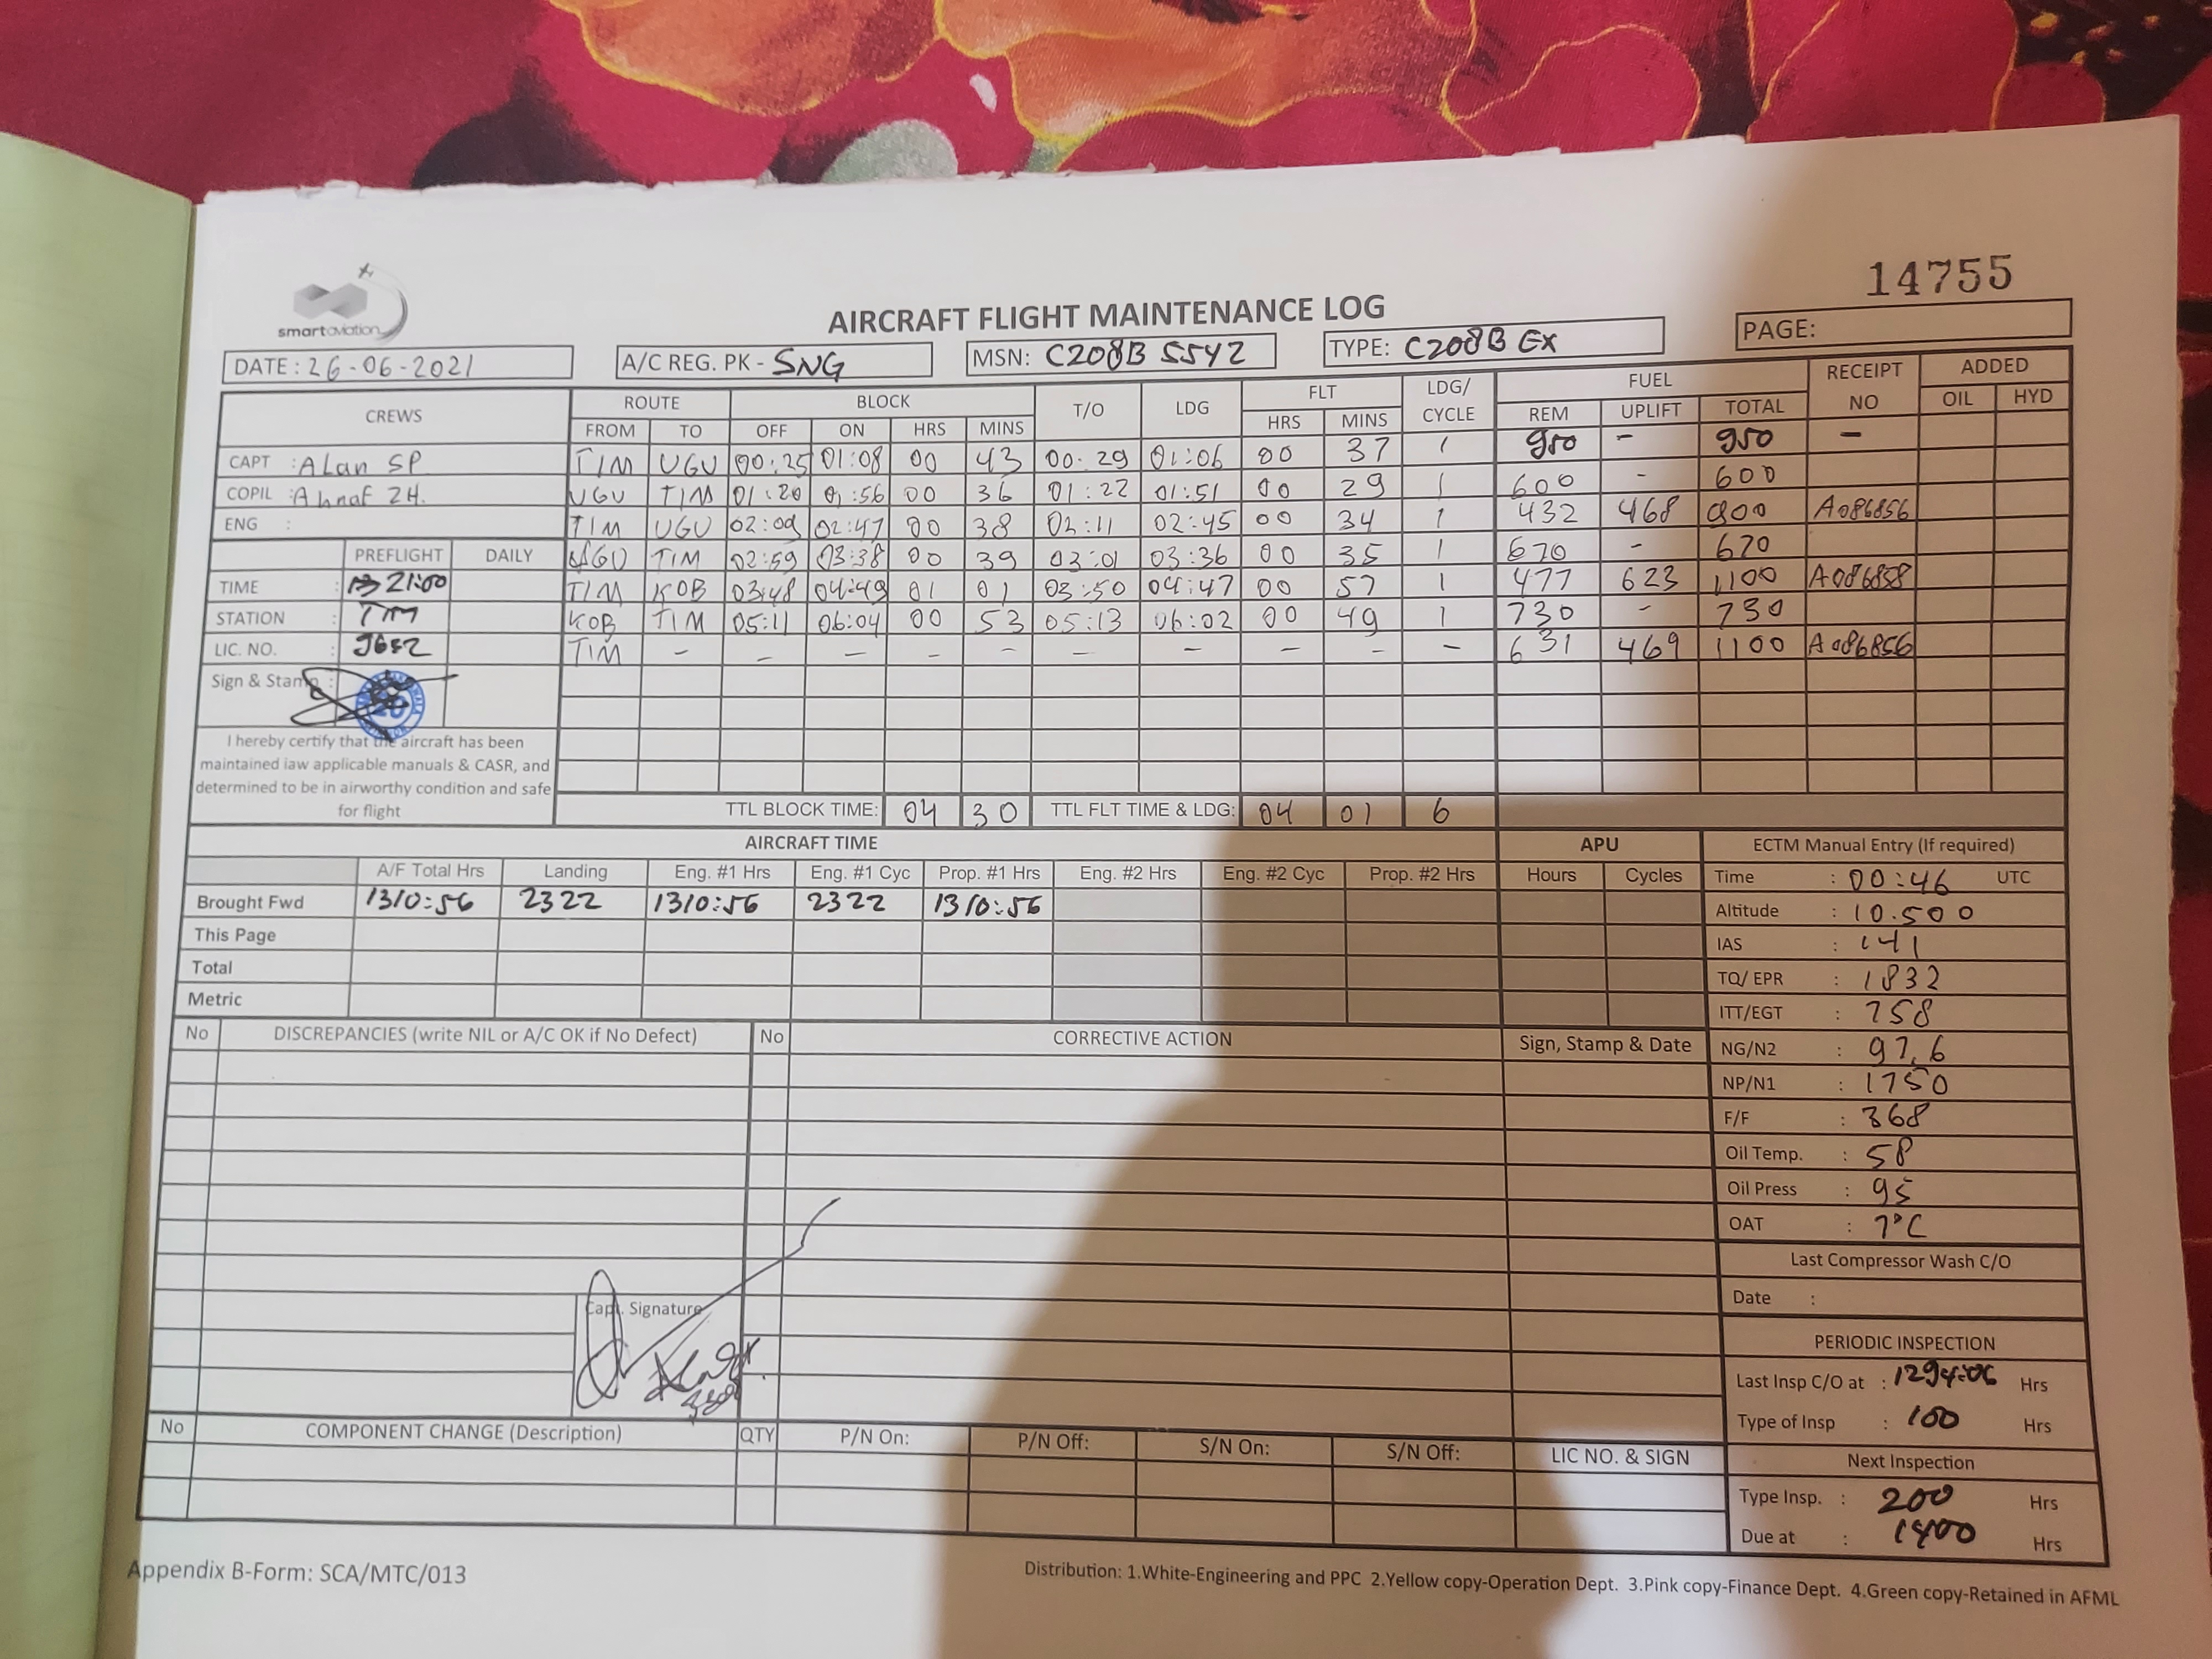 14755
smartaviation
AIRCRAFT FLIGHT MAINTENANCE LOG
DATE : 26-06-2021 A/C REG. PK - SNG MSN: C208B 5542 TYPE: C208B EX PAGE:
CREWS ROUTE BLOCK T/O LDG FLT LDG/ CYCLE FUEL RECEIPT NO ADDED
FROM TO OFF ON HRS MINS HRS MINS REM UPLIFT TOTAL OIL HYD
CAPT : ALan SP TIM UGU 00:25 01:08 00 43 00:29 01:06 00 37 1 950 - 950 -
COPIL : Ahnaf ZH. UGU TIM 01:20 01:56 00 36 01:22 01:51 00 29 1 600 - 600
ENG : TIM UGU 02:09 02:47 00 38 02:11 02:45 00 34 1 432 468 900 A086856
PREFLIGHT DAILY UGU TIM 02:59 03:38 00 39 03:01 03:36 00 35 1 670 - 670
TIME : 21:00 TIM KOB 03:48 04:49 01 01 03:50 04:47 00 57 1 477 623 1100 A086858
STATION : TIM KOB TIM 05:11 06:04 00 53 05:13 06:02 00 49 1 730 - 730
LIC. NO. : TIM - - - - - - - - - - 631 469 1100 A086856
Sign & Stamp :
I hereby certify that the aircraft has been
maintained iaw applicable manuals & CASR, and
determined to be in airworthy condition and safe
for flight
TTL BLOCK TIME: 04 30 TTL FLT TIME & LDG: 04 01 6
AIRCRAFT TIME APU ECTM Manual Entry (If required)
A/F Total Hrs Landing Eng. #1 Hrs Eng. #1 Cyc Prop. #1 Hrs Eng. #2 Hrs Eng. #2 Cyc Prop. #2 Hrs Hours Cycles Time : 00:46 UTC
Brought Fwd 1310:56 2322 1310:56 2322 1310:56 Altitude : 10.500
This Page IAS : 141
Total TQ/ EPR : 1832
Metric ITT/EGT : 758
No DISCREPANCIES (write NIL or A/C OK if No Defect) No CORRECTIVE ACTION Sign, Stamp & Date NG/N2 : 97,6
NP/N1 : 1750
F/F : 368
Oil Temp. : 58
Oil Press : 95
OAT : 7°C
Last Compressor Wash C/O
Date :
Capt. Signature
PERIODIC INSPECTION
Last Insp C/O at : 1294:06 Hrs
Type of Insp : 100 Hrs
No COMPONENT CHANGE (Description) QTY P/N On: P/N Off: S/N On: S/N Off: LIC NO. & SIGN
Next Inspection
Type Insp. : 200 Hrs
Due at : 1400 Hrs
Appendix B-Form: SCA/MTC/013
Distribution: 1.White-Engineering and PPC 2.Yellow copy-Operation Dept. 3.Pink copy-Finance Dept. 4.Green copy-Retained in AFML